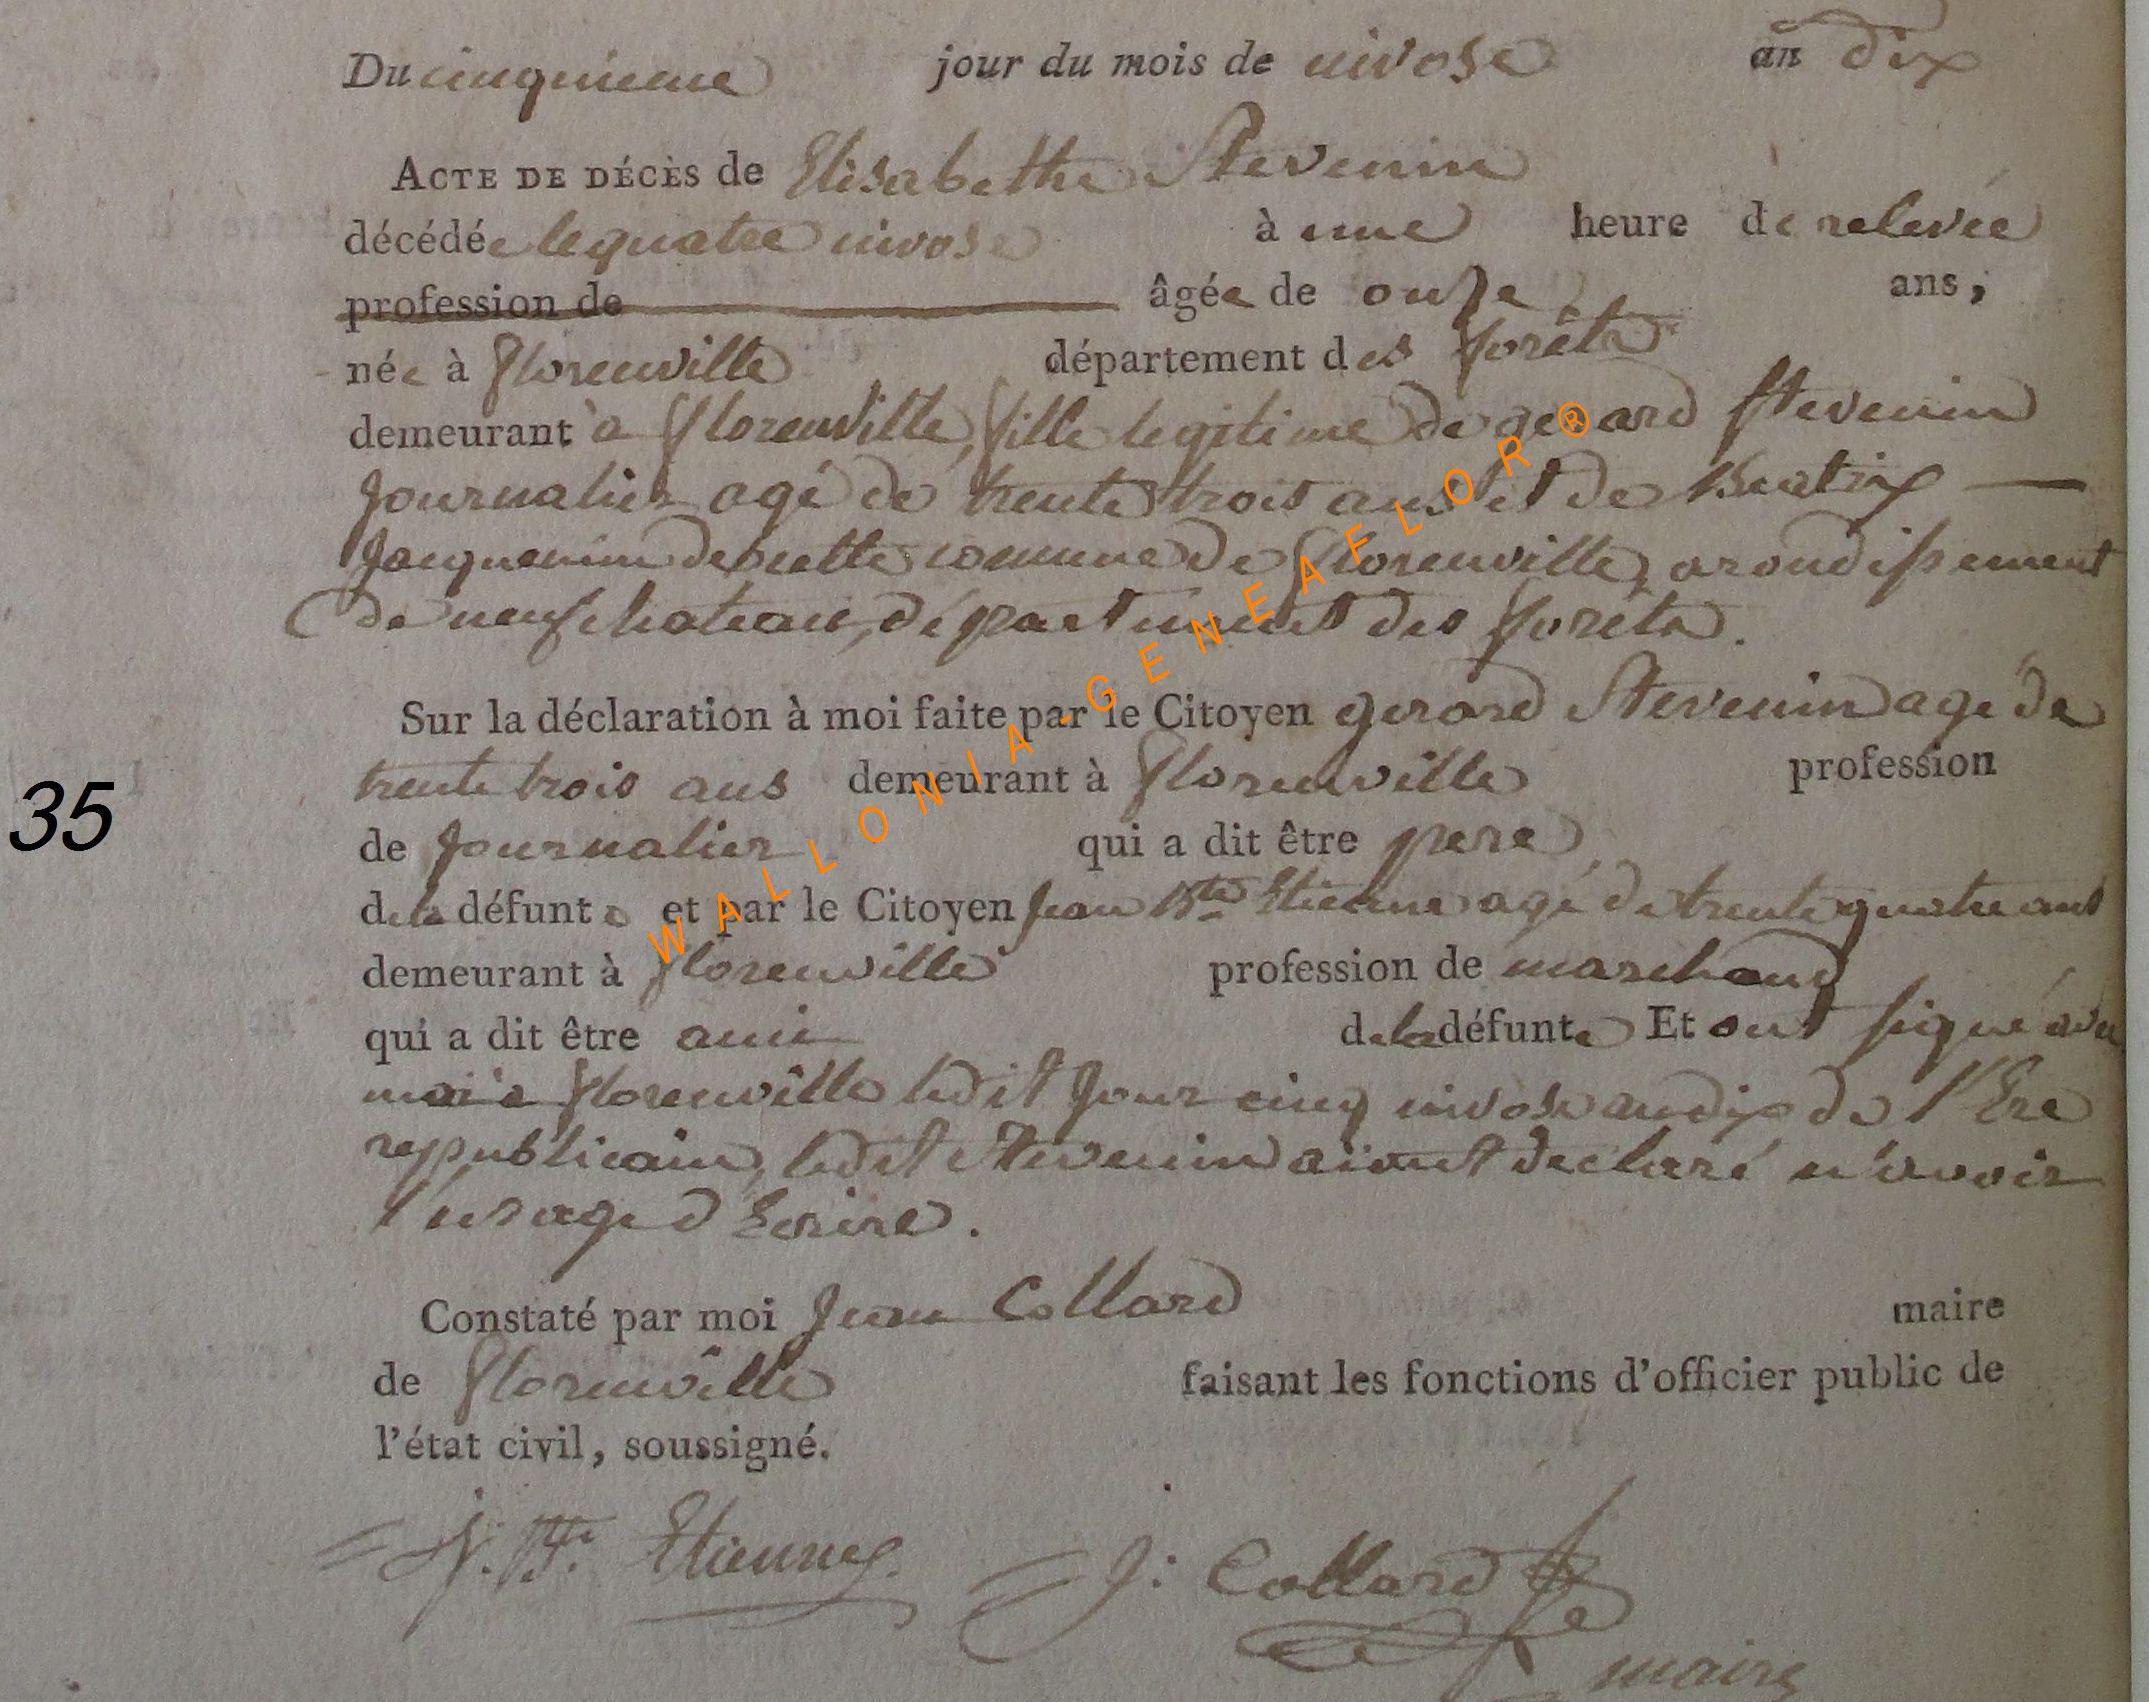 Du cinquieme jour du mois de nivose an dix
ACTE DE DÉCÈS de Elisabethe Stevenin
décédée le quatre nivose à une heure de relevée
profession de âgée de onze ans,
née à florenville département des forêts
demeurant à florenville, fille legitime de gerard Stevenin
journalier agé de trente trois ans et de Beatrix
Jacquemin de cette commune de florenville, arondissement
de neufchateau, département des forêts.
Sur la déclaration à moi faite par le Citoyen gerard Stevenin agé de
trente trois ans demeurant à florenville profession
de journalier qui a dit être pere
35
de la défunte et par le Citoyen jean Bte Etienne agé de trente quatre ans
demeurant à florenville profession de marchand
qui a dit être ami de la défunte Et ont signé avec
moi à florenville ledit jour cinq nivose an dix de l'Ere
republicain, ledit Stevenin aiant declaré n'avoir
l'usage d'Ecrire.
Constaté par moi Jean Collard maire
de florenville faisant les fonctions d'officier public de
l'état civil, soussigné.
J. Bte. Etienne. J: Collard
maire
WALLONIA-GENEAFLOR®